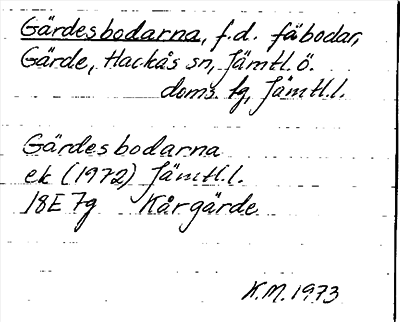 Gärdesbodarna, f.d. fäbodar,
Gärde, Hackås sn, Jämtl. ö.
doms. lg, Jämtl.l.
Gärdesbodarna
ek (1972) Jämtl.l.
18E 7g Kårgärde
K.M. 1973